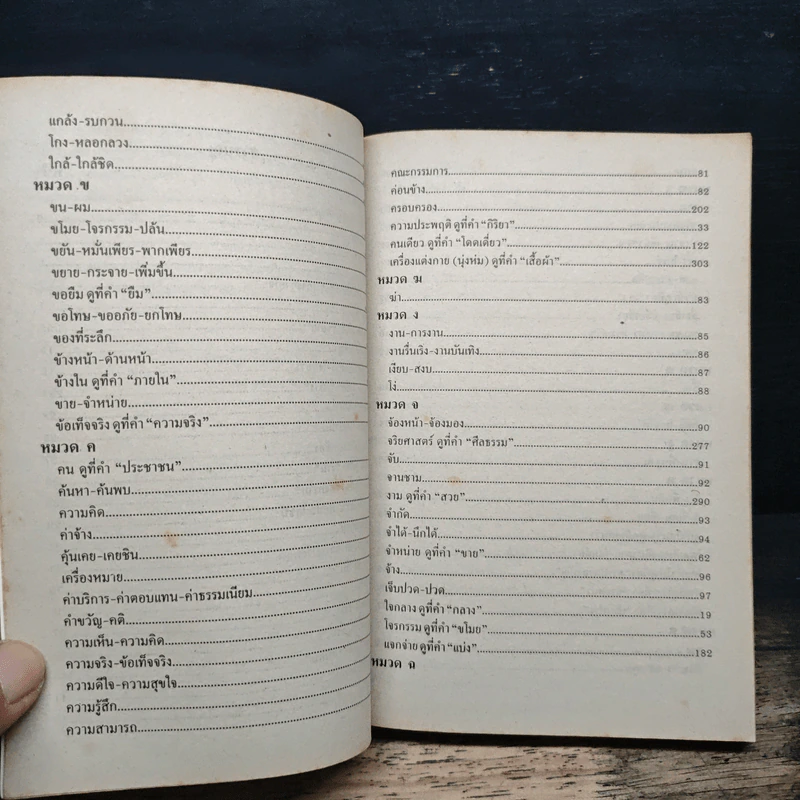 แกล้ง-รบกวน
โกง-หลอกลวง
ใกล้-ใกล้ชิด
หมวด ข
ขน-ผม
ขโมย-โจรกรรม-ปล้น
ขยัน-หมั่นเพียร-พากเพียร
ขยาย-กระจาย-เพิ่มขึ้น
ขอยืม ดูที่คำ “ยืม”
ขอโทษ-ขออภัย-ยกโทษ
ของที่ระลึก
ข้างหน้า-ด้านหน้า
ข้างใน ดูที่คำ “ภายใน”
ขาย-จำหน่าย
ข้อเท็จจริง ดูที่คำ “ความจริง”
หมวด ค
คน ดูที่คำ “ประชาชน”
ค้นหา-ค้นพบ
ความคิด
ค่าจ้าง
คุ้นเคย-เคยชิน
เครื่องหมาย
ค่าบริการ-ค่าตอบแทน-ค่าธรรมเนียม
คำขวัญ-คติ
ความเห็น-ความคิด
ความจริง-ข้อเท็จจริง
ความดีใจ-ความสุขใจ
ความรู้สึก
ความสามารถ
คณะกรรมการ 81
ค่อนข้าง 82
ครอบครอง 202
ความประพฤติ ดูที่คำ “กิริยา” 33
คนเดียว ดูที่คำ “โดดเดี่ยว” 122
เครื่องแต่งกาย (นุ่งห่ม) ดูที่คำ “เสื้อผ้า” 303
หมวด ฆ
ฆ่า 83
หมวด ง
งาน-การงาน 85
งานรื่นเริง-งานบันเทิง 86
เงียบ-สงบ 87
โง่ 88
หมวด จ
จ้องหน้า-จ้องมอง 90
จริยศาสตร์ ดูที่คำ “ศีลธรรม” 277
จับ 91
จานชาม 92
งาม ดูที่คำ “สวย” 290
จำกัด 93
จำได้-นึกได้ 94
จำหน่าย ดูที่คำ “ขาย” 62
จ้าง 96
เจ็บปวด-ปวด 97
ใจกลาง ดูที่คำ “กลาง” 19
โจรกรรม ดูที่คำ “ขโมย” 53
แจกจ่าย ดูที่คำ “แบ่ง” 182
หมวด ฉ